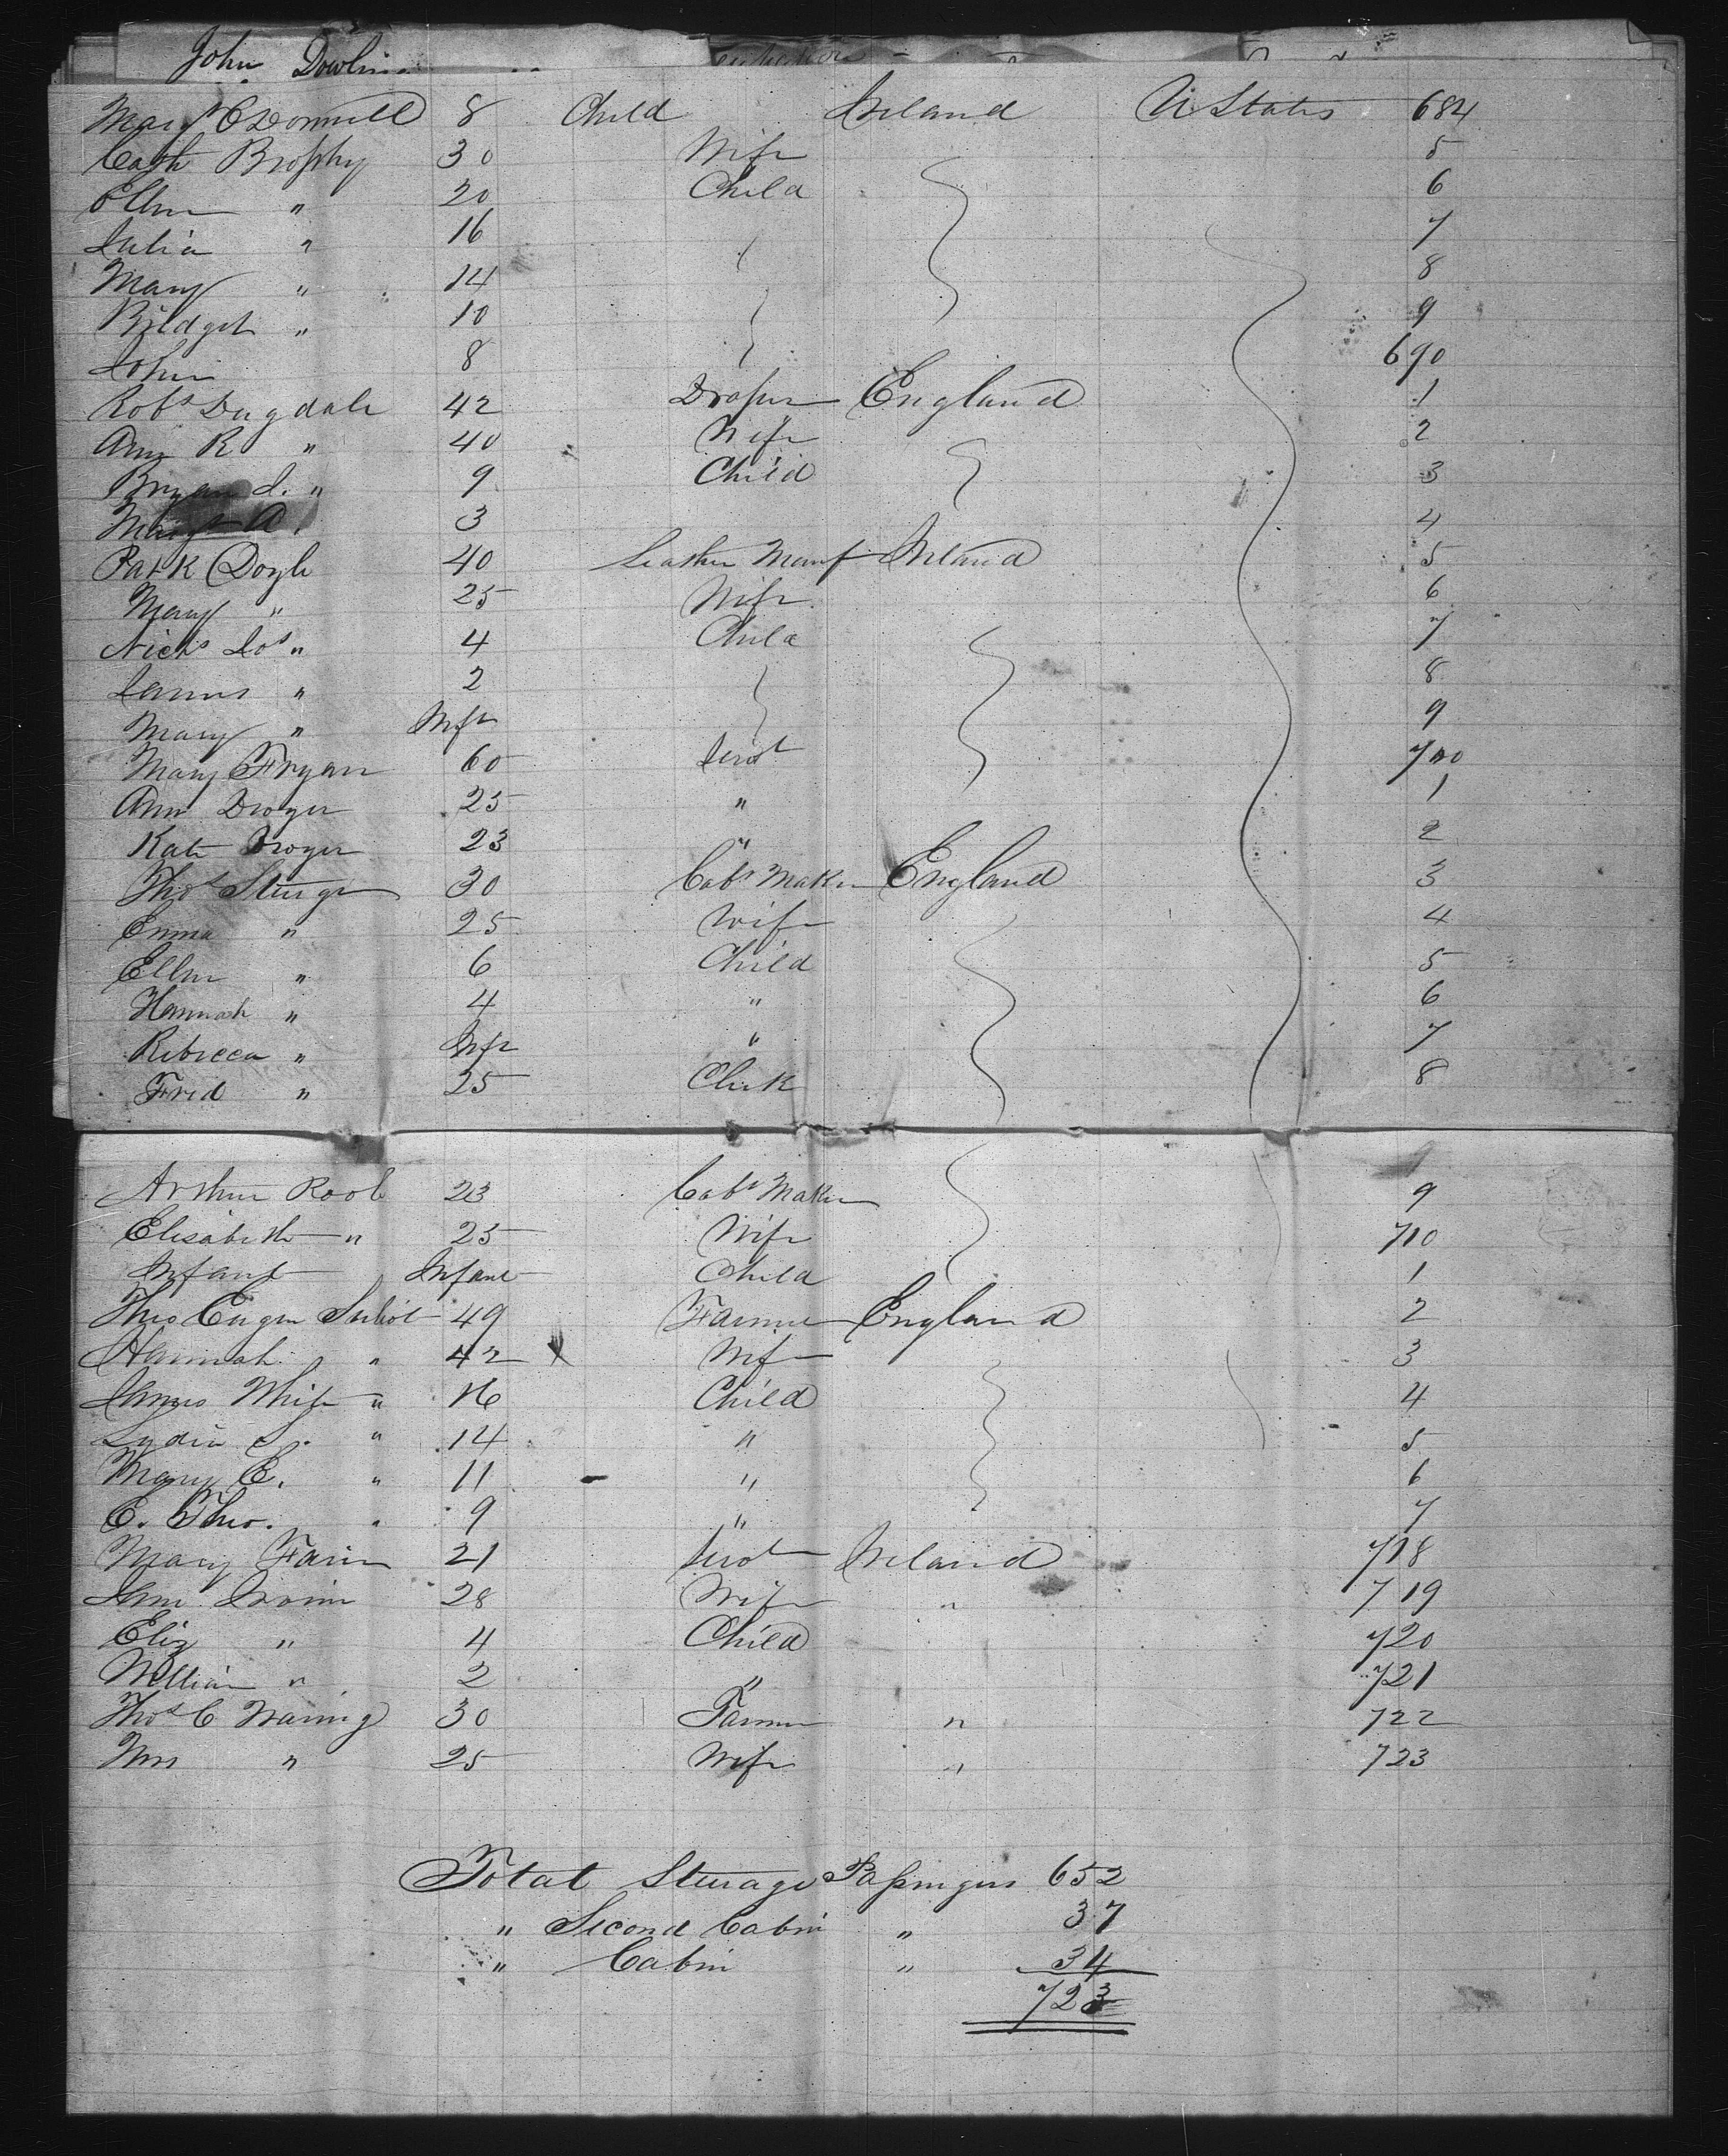 John Dowlin
Mary O'Donnell 8 Child Ireland U States 684
Cath Brophy 30 Wife 5
Ellen " 20 Child 6
Julia " 16 7
Mary " 14 8
Bridget " 10 9
John 8 690
Robt Dugdale 42 Draper England 1
Ann R " 40 Wife 2
Bryan J. " 9 Child 3
Margt A. 3 4
Patk Doyle 40 Leather Manf Ireland 5
Mary " 25 Wife 6
Nichs Jos " 4 Child 7
James " 2 8
Mary " Inft 9
Mary Fryan 60 Servt 700
Ann Droger 25 " 1
Kate Droger 23 " 2
Thos Sturge 30 Cabt Maker England 3
Emma " 25 Wife 4
Ellen " 6 Child 5
Hannah " 4 " 6
Rebecca " Inft " 7
Fred " 25 Clerk 8
Arthur Roob 23 Cabt Maker 9
Elisabeth " 25 Wife 710
Infant Infant Child 1
Theo Eugen 49 Farmer England 2
Hannah " 42 Wife 3
James White " 16 Child 4
Lydia S. " 14 " 5
Mary E. " 11 " 6
E. Theo. " 9 " 7
Mary Farin 21 Servt Ireland 718
Jane Irvine 28 Wife " 719
Eliz " 4 Child 720
William " 2 " 721
Thos C Waring 30 Farmer " 722
Mrs " 25 Wife " 723
Total Steerage Passengers 652
" Second Cabin " 37
" Cabin " 34
723